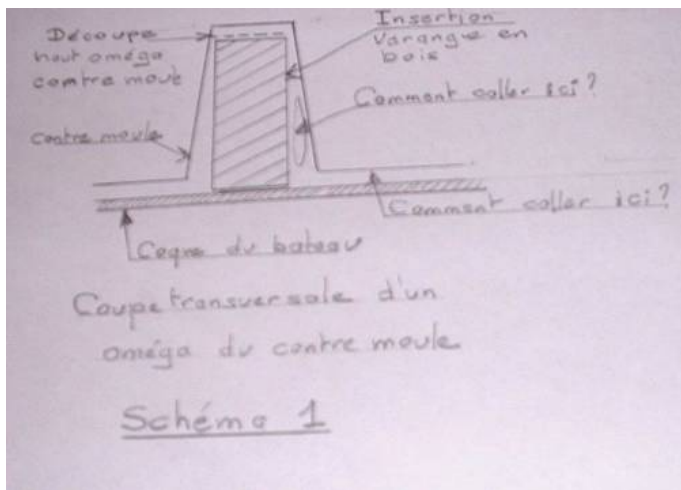 Découpe
haut oméga
contre moule
Insertion
Varangue en
bois
Comment coller ici?
contre moule
Comment coller ici?
Coque du bateau
Coupe transversale d'un
oméga du contre moule
Schéma 1